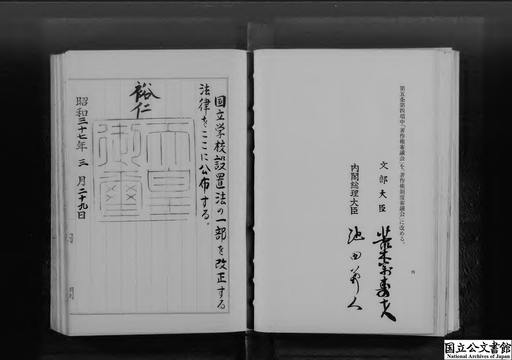 第五条第四項中「著作権審議会」を「著作権制度審議会」に改める。
文部大臣
荒木萬壽夫
内閣総理大臣
池田勇人
国立学校設置法の一部を改正する
法律をここに公布する。
裕仁
天皇
御璽
昭和三十七年三月二十九日
国立公文書館
National Archives of Japan